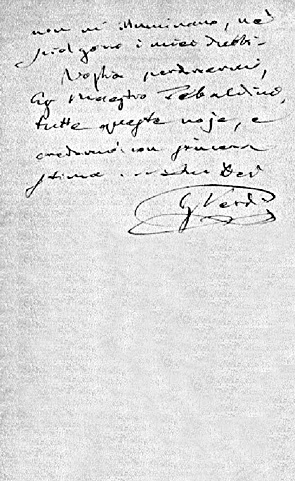 non m'illuminano, nè
sciolgono i miei dubbi.
Voglia perdonarmi,
Eg Maestro Tebaldini,
tutte queste noje, e
credermi con sincera
stima Dev
G Verdi